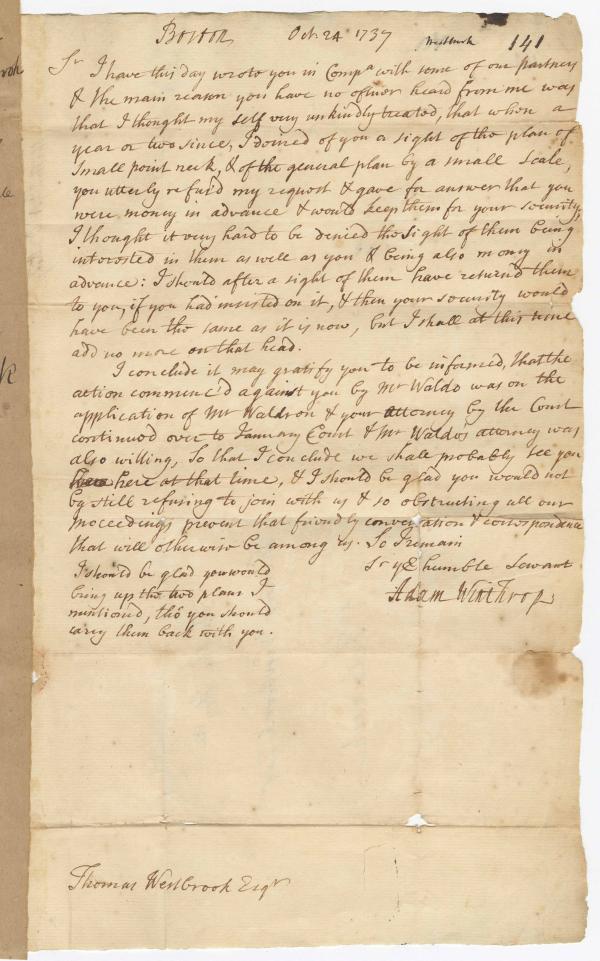 Boston Oct. 24 1737 Westbrook 141
Sr. I have this day wrote you in Compa. with some of our partners
& the main reason you have no oftner heard from me was
that I thought my self very unkindly treated, that when a
year or two since, I desired of you a sight of the plan of
Small point neck, & of the general plan by a small scale,
you utterly refus'd my request & gave for answer that you
were money in advance & would keep them for your security,
I thought it very hard to be denied the sight of them being
interested in them as well as you & being also money in
advance: I should after a sight of them have returnd them
to you, if you had insisted on it, & then your security would
have been the same as it is now, but I shall at this time
add no more on that head.
I conclude it may gratify you to be informed, that the
action commenc'd against you by Mr Waldo was on the
application of Mr Waldron & your attorney by the Court
continued over to January Court & Mr Waldo's attorney was
also willing, So that I conclude we shall probably see you
here at that time, & I should be glad you would not
by still refusing to join with us & so obstructing all our
proceedings prevent that friendly conversation & correspondence
that will otherwise be among us. So I remain
Sr yE humble Servant
Adam Winthrop
I should be glad you would
bring up the two plans I
mentioned, tho' you should
carry them back with you.
Thomas Westbrook Esqr